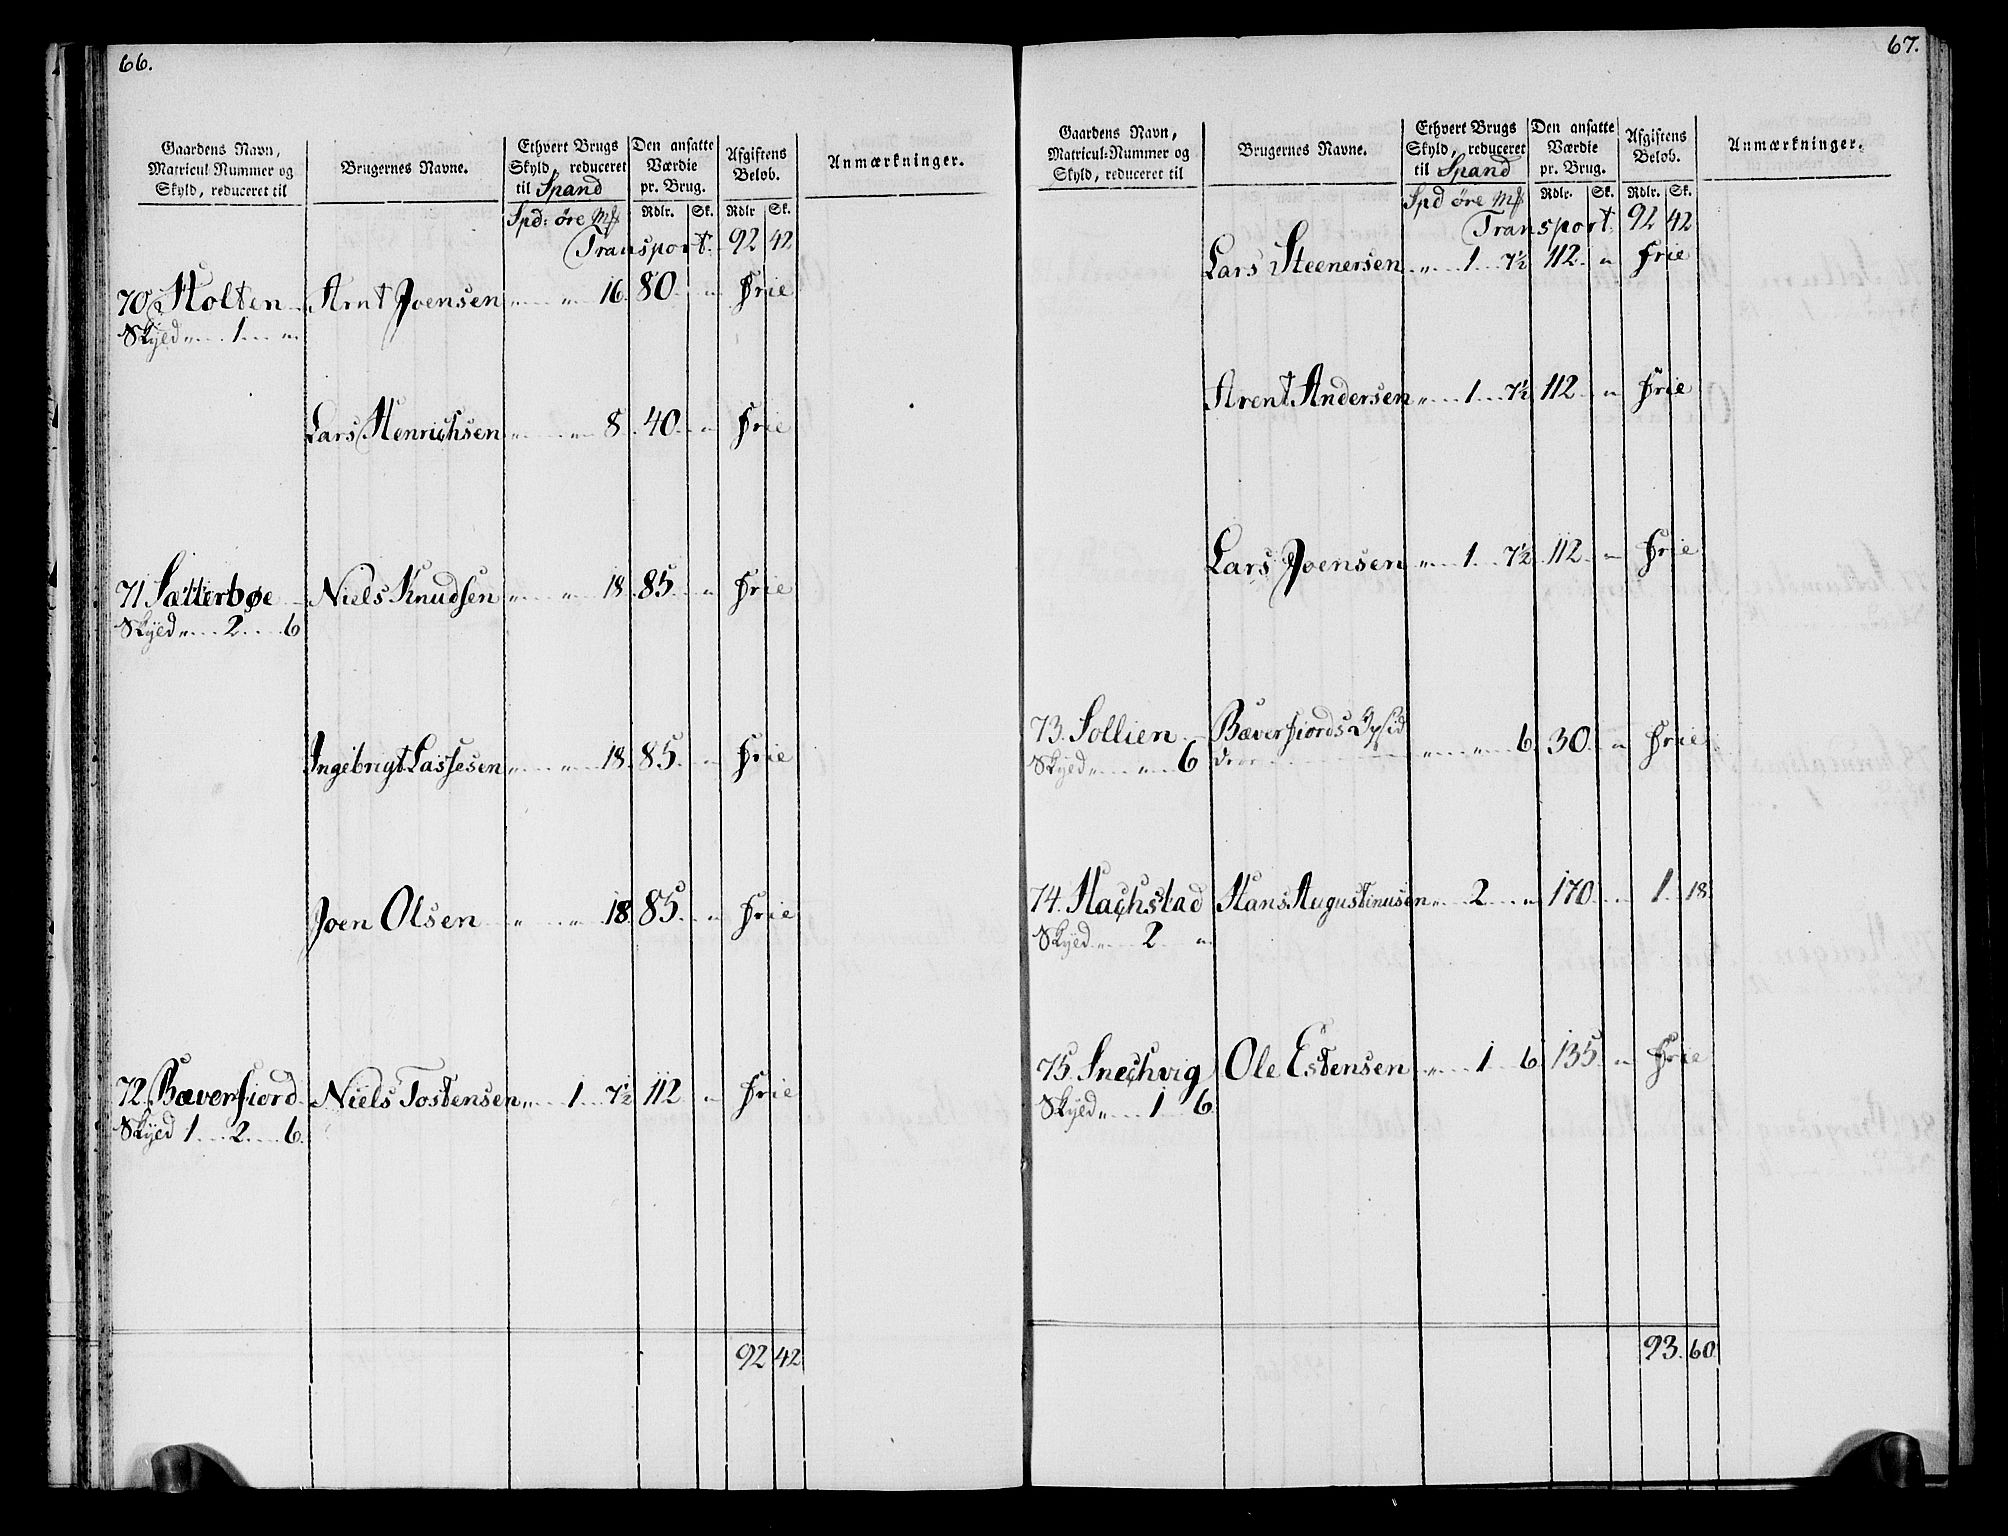 66.
Gaardens Navn, Matricul Nummer og Skyld, reduceret til
Brugernes Navne.
Ethvert Brugs Skyld, reduceret til Spand
Den ansatte Værdie pr. Brug.
Afgiftens Beløb.
Anmærkninger.
Spd: øre Mk Rdlr. Sk. Rdlr Sk.
Transport: 92 42
70 Holten Arnt Joensen " " 16 80 " Frie
Skyld " 1 "
Lars Henrichsen " " 8 40 " Frie
71 Sætterbøe Niels Knudsen " " 18 85 " Frie
Skyld " 2 6
Ingebrigt Lassesen " " 18 85 " Frie
Joen Olsen " " 18 85 " Frie
72 Bæverfiord Niels Tostensen " 1 7½ 112 " Frie
Skyld 1 2 6
92 42
67.
Gaardens Navn, Matricul-Nummer og Skyld, reduceret til
Brugernes Navne.
Ethvert Brugs Skyld, reduceret til Spand
Den ansatte Værdie pr. Brug.
Afgiftens Beløb.
Anmærkninger.
Spd øre Mk Rdlr. Sk. Rdlr. Sk.
Transport: 92 42
Lars Steenersen " 1 7½ 112 " Frie
Arent Andersen " 1 7½ 112 " Frie
Lars Joensen " 1 7½ 112 " Frie
73. Sollien Bæverfiords Opsid
Skyld " " 6 dere " " 6 30 " Frie
74. Hachstad Hans Augustinusen " 2 " 170 " 1 18
Skyld " 2 "
75. Snechvig Ole Estensen " 1 6 135 " Frie
Skyld " 1 6
93. 60